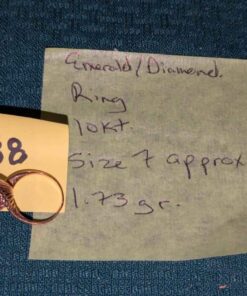 Emerald/Diamond
Ring
10Kt.
Size 7 approx
1.73 gr.
38